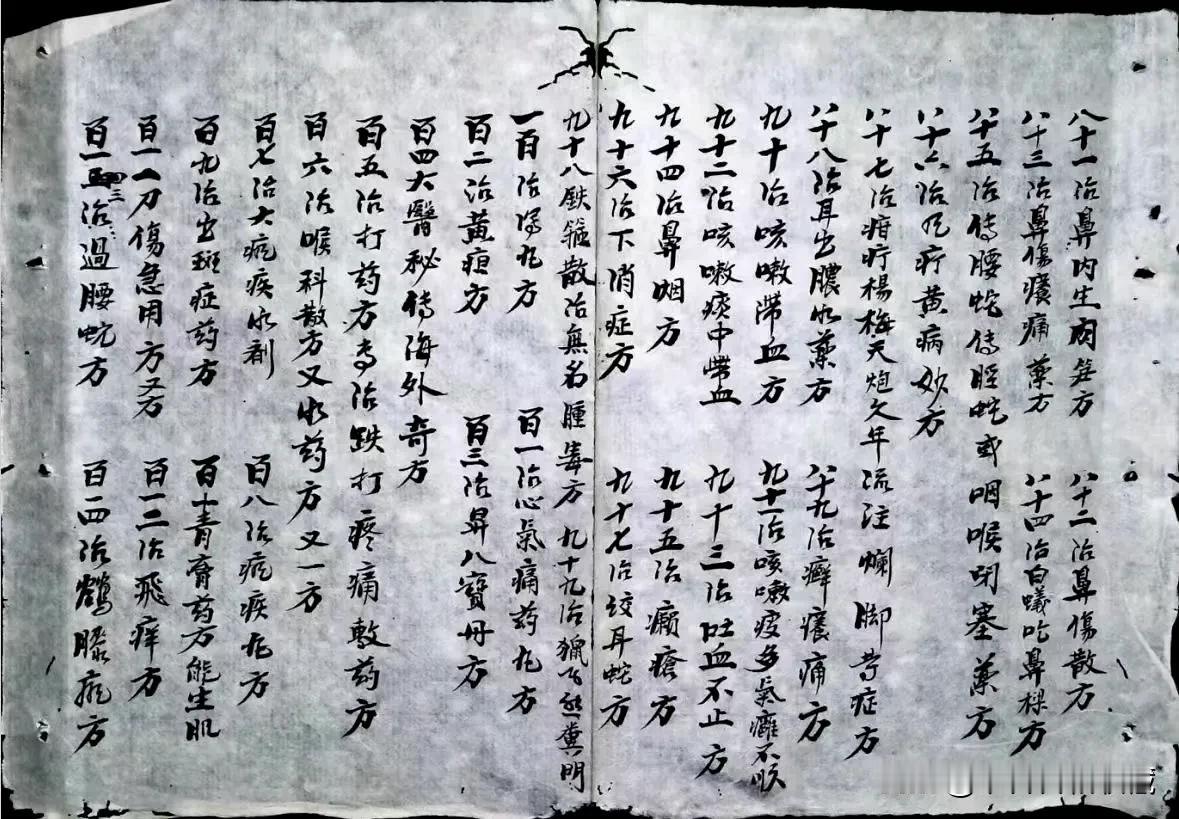 八十一治鼻内生肉 方 八十二治鼻傷散方
八十三治鼻傷癀痛藥方 八十四治白蟻吃鼻樑方
八十五治傳腰蛇傳脛蛇或咽喉閉塞藥方
八十六治疔黄病妙方
八十七治疳疔楊梅天炮久年流注爛脚等症方
八十八治耳出膿水藥方 八十九治癬癀痛方
九十治咳嗽滞血方 九十一治咳嗽痰多氣癰不順
九十二治咳嗽痰中帶血 九十三治吐血不止方
九十四治鼻烟方 九十五治癩瘡方
九十六治下消症方 九十七治绞耳蛇方
九十八鉄箍散治無名腫毒方 九十九治 糞明
一百治 九方 百一治心氣痛药九方
百二治黄疸方 百三治昇八寶丹方
百四大醫秘傳海外奇方
百五治打药方专治跌打疼痛敷药方
百六治喉科散方又水药方又一方
百七治大疟疾水剂 百八治疟疾九方
百九治出斑症药方 百十青膏药方能生肌
百一一刀傷急用方又方 百一二治飛痒方
百一三治過腰蛇方 百一四治鶴膝瘋方